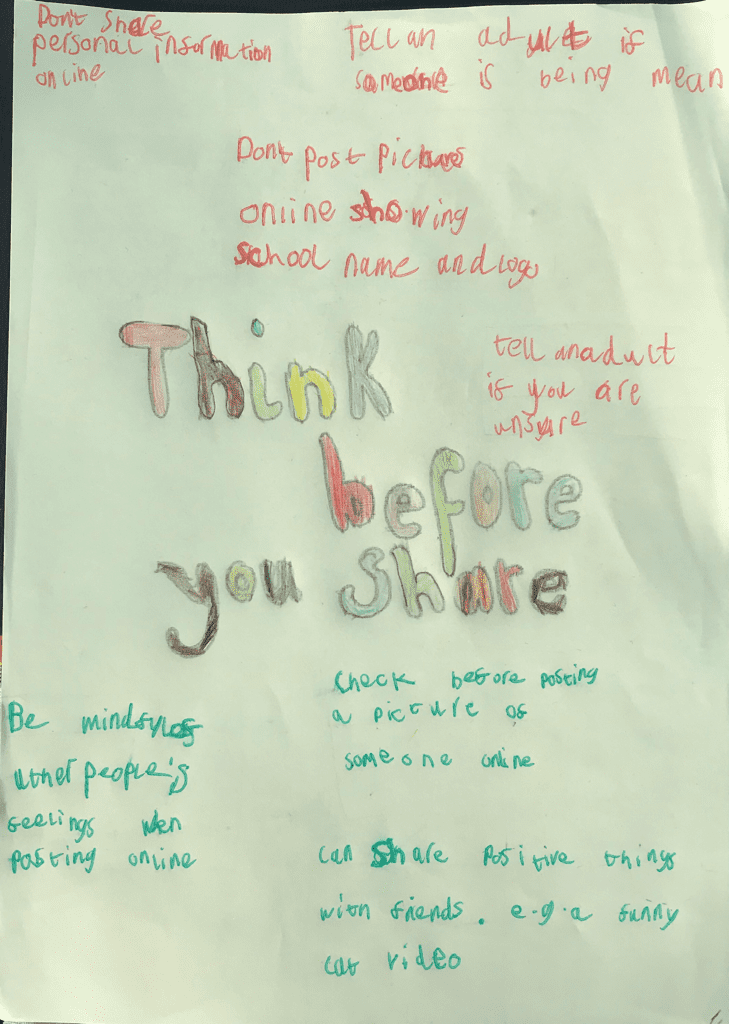 Don't Share
personal information
online
Tell an adult if
someone is being mean
Dont post pictures
online showing
school name and logo
Think
before
you Share
tell an adult
if you are
unsure
Check before posting
a picture of
someone online
Be mindful of
other people's
feelings wen
posting online
can share positive things
with friends. e.g. a funny
cat video